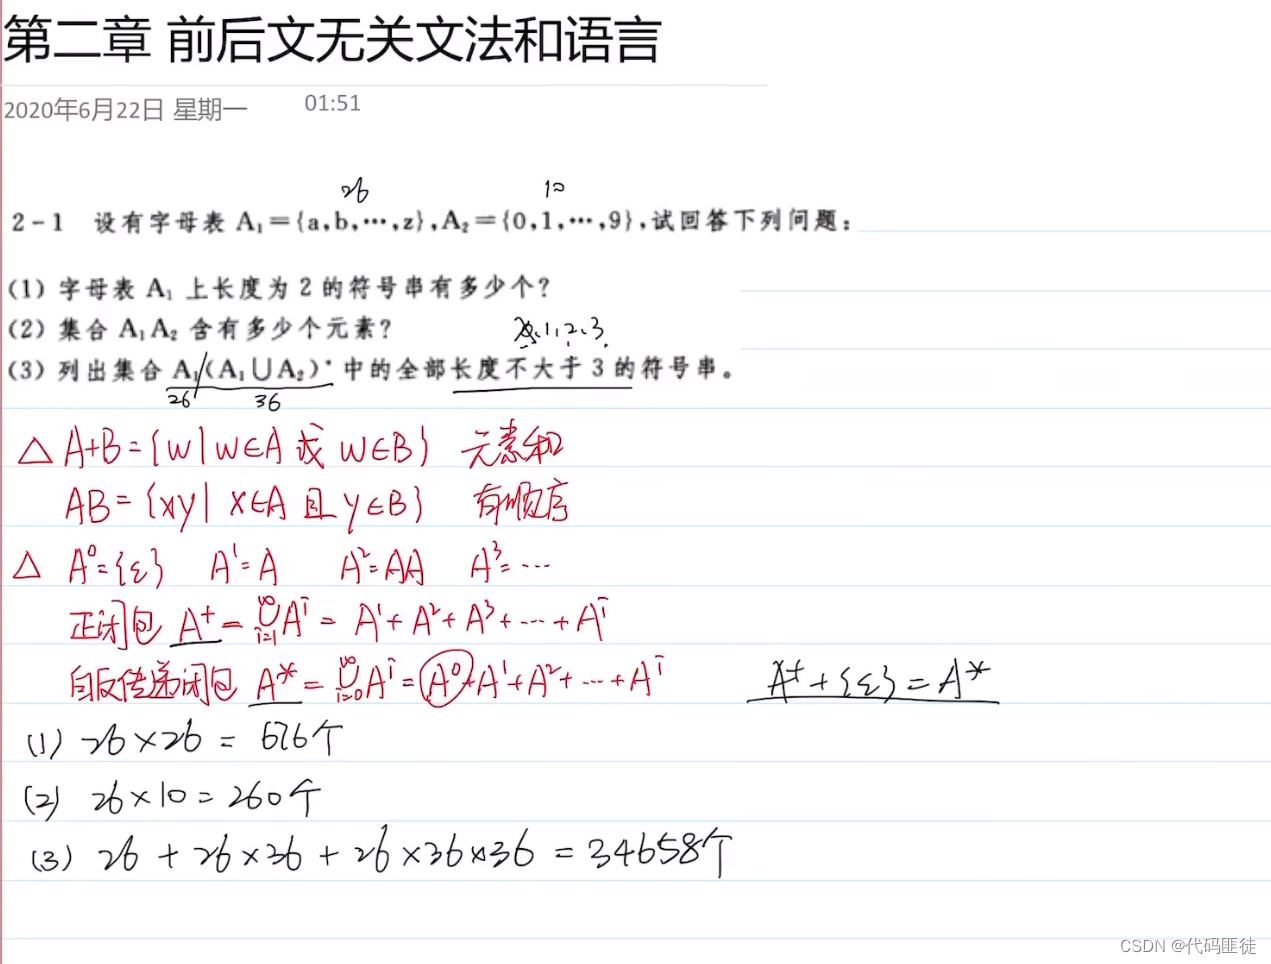 第二章 前后文无关文法和语言
2020年6月22日 星期一 01:51
26 10
2-1 设有字母表 A₁={a,b,…,z},A₂={0,1,…,9},试回答下列问题:
(1) 字母表 A₁ 上长度为 2 的符号串有多少个?
(2) 集合 A₁A₂ 含有多少个元素?
1、2、3
(3) 列出集合 A₁(A₁∪A₂)* 中的全部长度不大于 3 的符号串。
26 36
△ A+B={w|w∈A 或 w∈B} 元素和
AB={xy|x∈A 且 y∈B} 有顺序
△ A⁰={ε} A¹=A A²=AA A³=…
正闭包 A⁺=∪(i=1,∞)Aⁱ=A¹+A²+A³+…+Aⁱ
自反传递闭包 A*=∪(i=0,∞)Aⁱ=A⁰+A¹+A²+…+Aⁱ A⁺+{ε}=A*
(1) 26×26=676个
(2) 26×10=260个
(3) 26+26×36+26×36×36=34658个
CSDN @代码匪徒